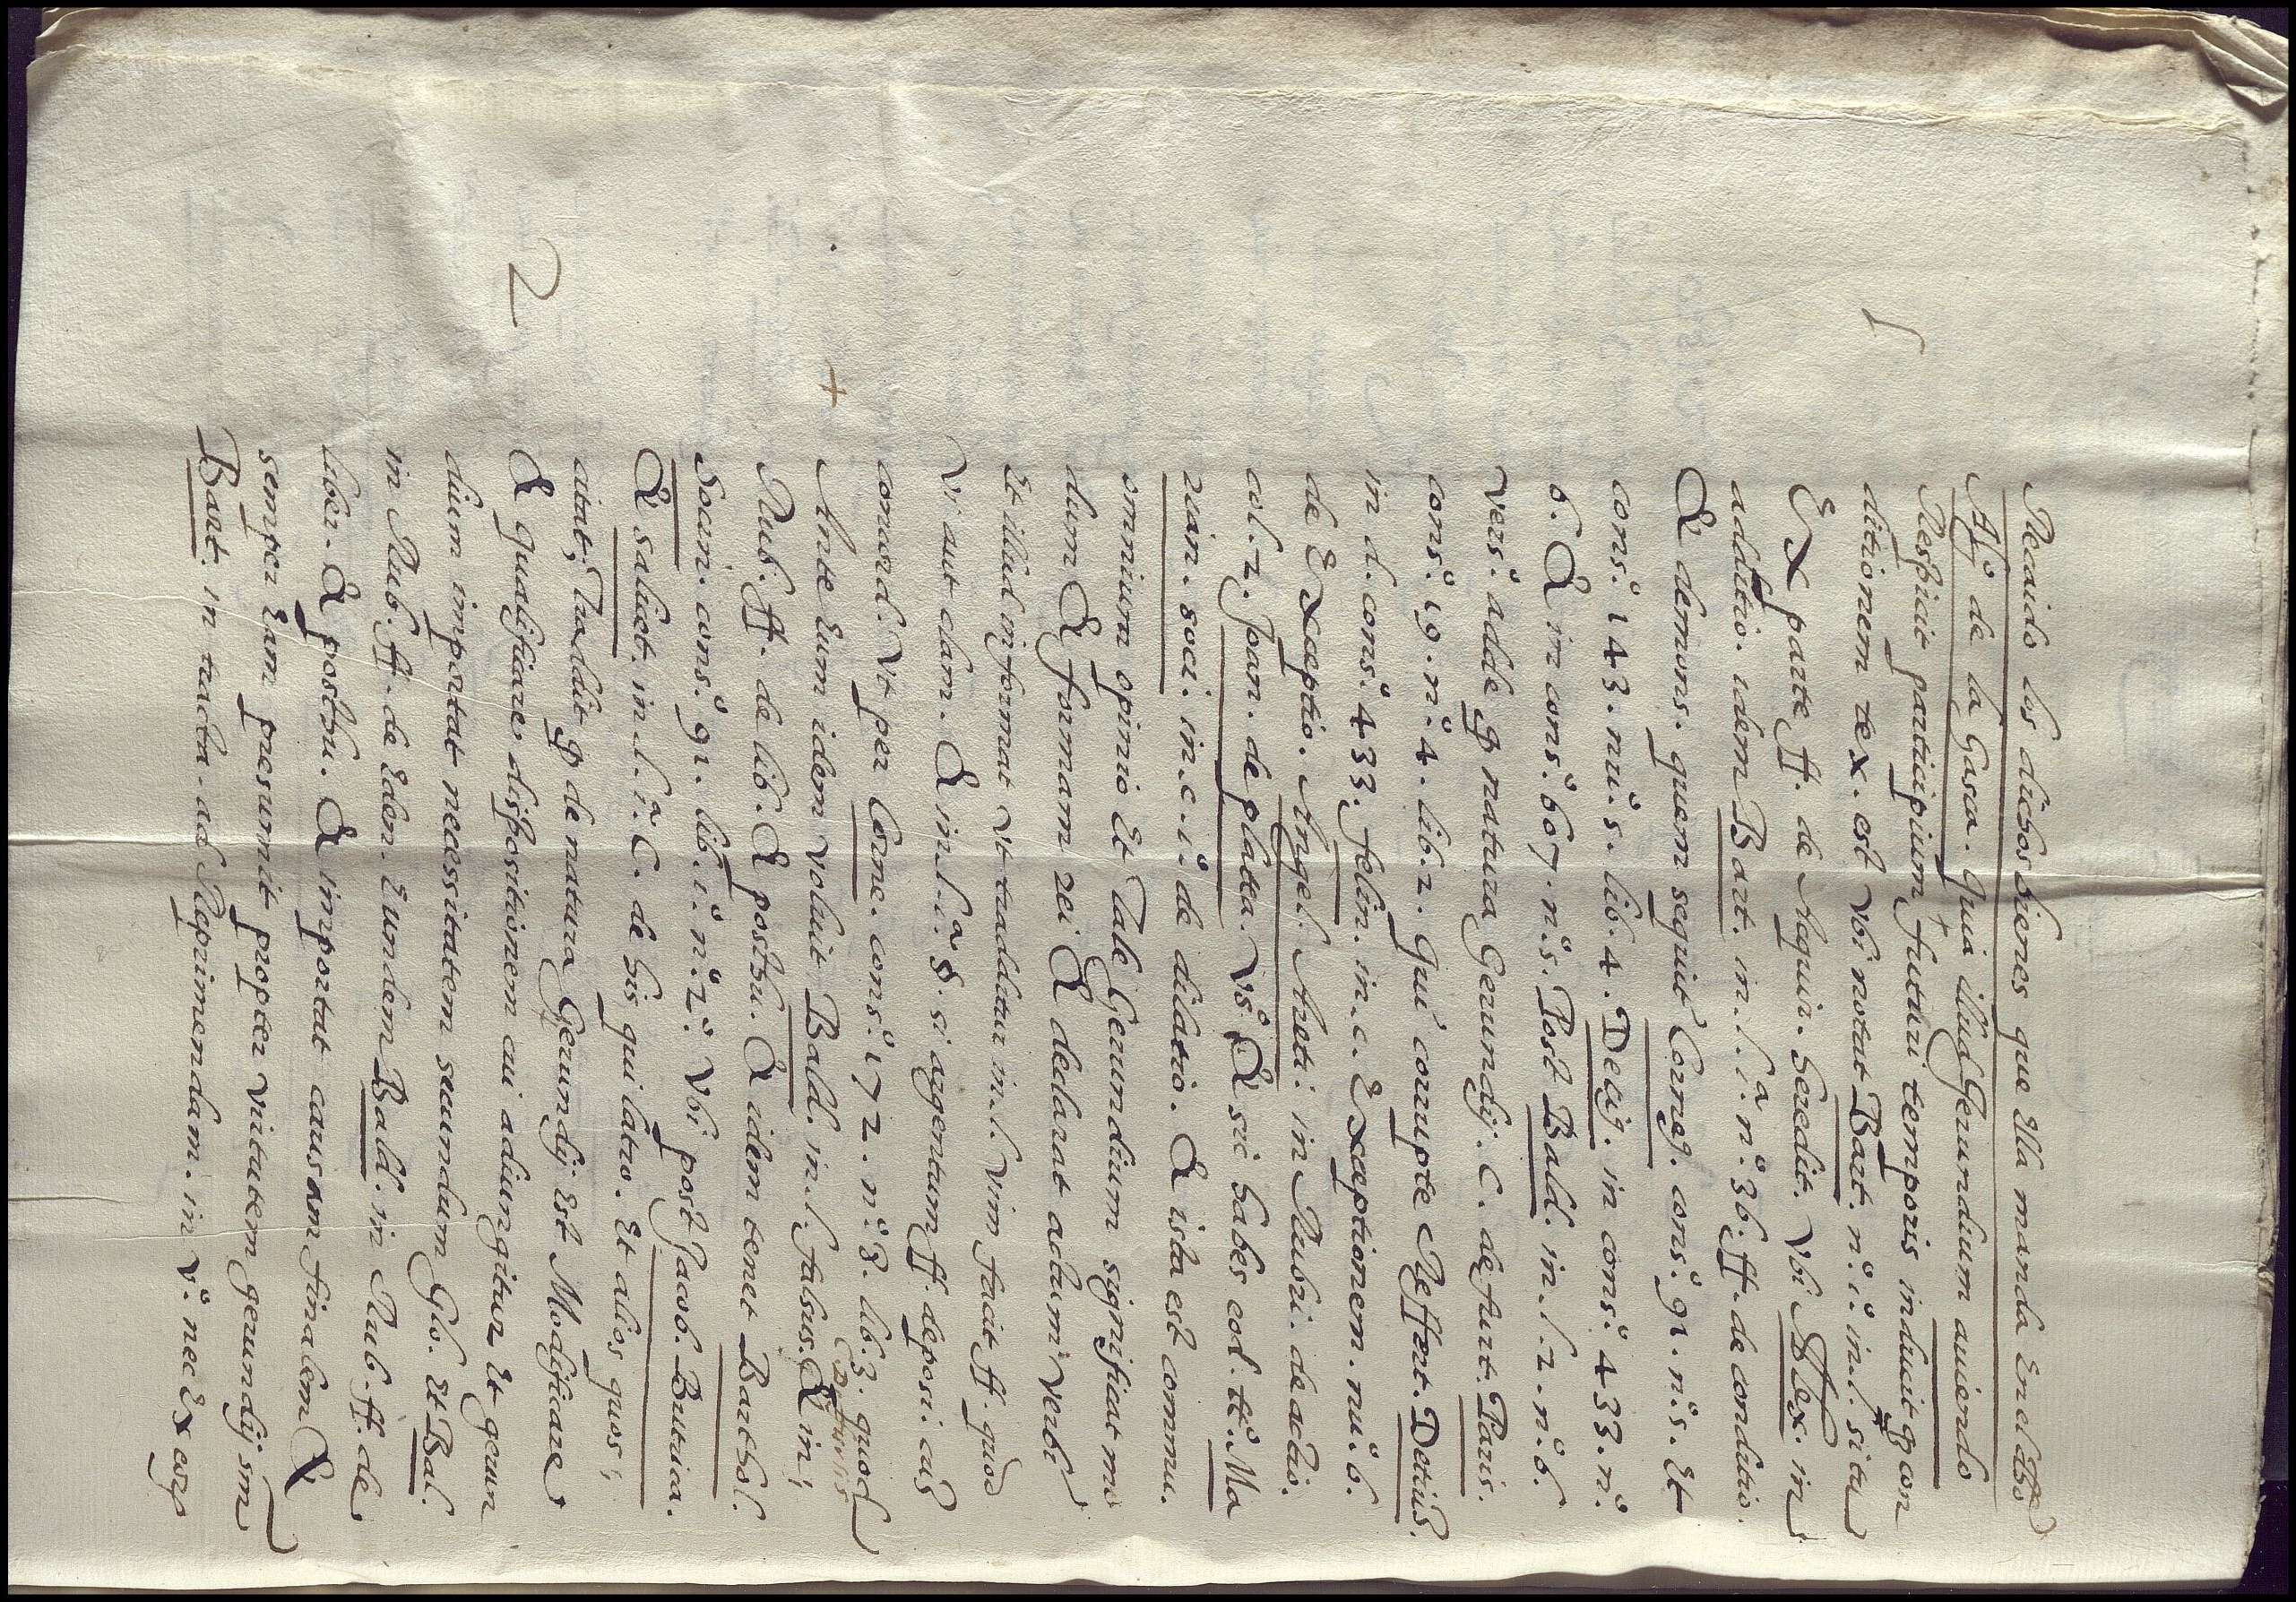 Recaido los dichos bienes que Ella manda En el dho
Alfº de la Gasca. quia illud Gerundium auiendo
Respicit participium futuri temporis inducit q con
ditionem tex. est vbi notat Bart. nº. i. in. l. si tu
1
Ex parte ff. de Acquir. heredit. Vbi Alex. in
additio. idem Bart. in. l. iª. nº. 36. ff. de conditio.
& demons. quem sequit Corneg. consº. 91. nº. 5. Et
consº. 143. nuº. 5. lib. 4. Decij. in consº. 433. nº.
6. & in consº. 607. nº. 5. Post Bald. in. l. 2. nº. 6.
versº. adde q natura Gerundij. C. de furt. Paris.
consº. 19. nº. 4. lib. 2. qui corrupte Reffert. Detius.
in d. consº. 433. felin. in. c. Exceptionem. nuº. 6.
de Exceptio. Angel. Areti. in Rubri. de actio.
col. 2. Joan. de platta. Vsº. & sic habes eod. ttº. Ma
rian. soci. in. c. i. de dilatio. & ista est commu.
omnium opinio Et Tale Gerundium significat mo
dum & formam rei & declarat actum verbi
Et illud informat vt traditur in. l. vim facit ff. quod
Vi aut clam. & in. l. iª. §. si argentum ff. deposi. aut
comod. Vt per Corne. consº. 172. nº. 3. lib. 3. quod
+
Ante Eum idem voluit Bald. in. l. falsus. C. de furtis. & in;
Rub. ff. de lib. & posthu. & idem tenet Barthol.
Socin. consº. 91. lib. iº. nº. 2º. Vbi post Jacob. Butrica.
& salicet. in. l. iª. C. de his qui latro. Et alios quos;
citat, Traddit q de natura Gerundij Est Modificare
2
& qualificare dispositionem cui adiungitur Et gerun
dium importat necessitatem secundum Glo. Et Bal.
in Rub. ff. de Eden. Eundem Bald. in Rub. ff. de
liber. & posthu. & importat causam finalem &
semper Eam presumit propter virtutem gerundij sm
Bart. in tracta. ad Reprimendam. in vº. nec Ex